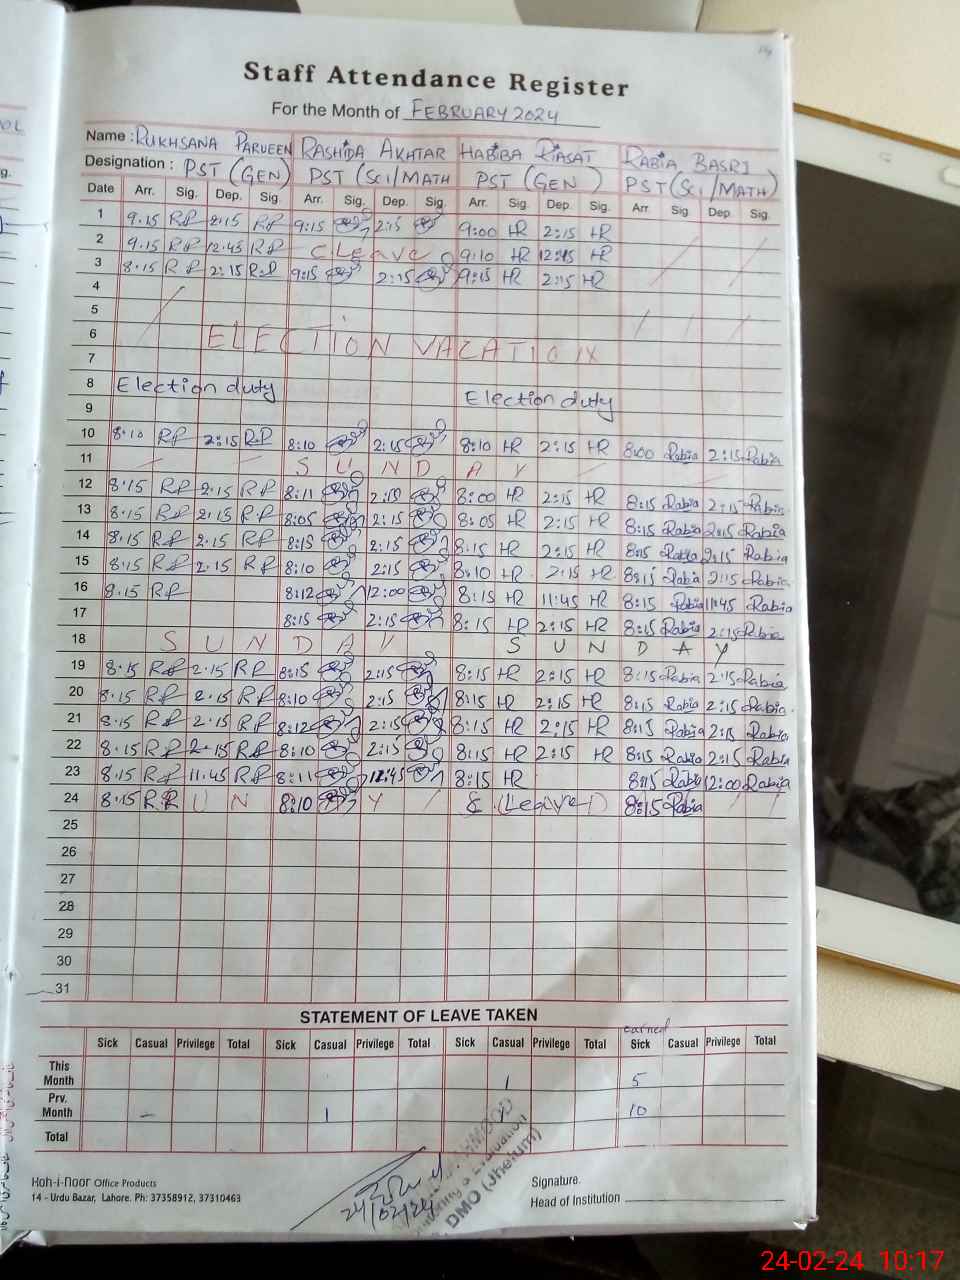 Staff Attendance Register
For the Month of FEBRUARY 2024
Name : RUKHSANA PARVEEN RASHIDA AKHTAR HABIBA RIASAT RABIA BASRI
Designation : PST (GEN) PST (Sci/MATH PST (GEN) PST (Sci/MATH)
Date Arr. Sig. Dep. Sig. Arr. Sig. Dep. Sig. Arr. Sig. Dep. Sig. Arr. Sig Dep. Sig.
1 9.15 RP 2:15 RP 9:15 2:15 9:00 HR 2:15 HR
2 9.15 RP 12.45 RP C Leave 9:10 HR 12:45 HR
3 8.15 RP 2:15 RP 9:15 2:15 9:15 HR 2:15 HR
4
5
6 ELECTION VACATION
7
8 Election duty Election duty
9
10 8.10 RP 2:15 RP 8:10 2:15 8:10 HR 2:15 HR 8:00 Rabia 2:15 Rabia
11 S U N D A Y
12 8.15 RP 2.15 RP 8:11 2:15 8:00 HR 2:15 HR 8:15 Rabia 2:15 Rabia
13 8.15 RP 2.15 RP 8:05 2:15 8:05 HR 2:15 HR 8:15 Rabia 2:15 Rabia
14 8.15 RP 2.15 RP 8:15 2:15 8:15 HR 2:15 HR 8:15 Rabia 2:15 Rabia
15 8.15 RP 2.15 RP 8:10 2:15 8:10 HR 2:15 HR 8:15 Rabia 2:15 Rabia
16 8.15 RP 8:12 12:00 8:15 HR 11:45 HR 8:15 Rabia 11:45 Rabia
17 8:15 2:15 8:15 HR 2:15 HR 8:15 Rabia 2:15 Rabia
18 S U N D A Y S U N D A Y
19 8.15 RP 2.15 RP 8:15 2:15 8:15 HR 2:15 HR 8:15 Rabia 2:15 Rabia
20 8.15 RP 2.15 RP 8:10 2:15 8:15 HR 2:15 HR 8:15 Rabia 2:15 Rabia
21 8.15 RP 2.15 RP 8:12 2:15 8:15 HR 2:15 HR 8:15 Rabia 2:15 Rabia
22 8.15 RP 2.15 RP 8:10 2:15 8:15 HR 2:15 HR 8:15 Rabia 2:15 Rabia
23 8.15 RP 11.45 RP 8:11 11:45 8:15 HR 8:15 Rabia 12:00 Rabia
24 8.15 RP U N 8:10 Y (Leave) 8:15 Rabia
25
26
27
28
29
30
31
STATEMENT OF LEAVE TAKEN
earned
Sick Casual Privilege Total Sick Casual Privilege Total Sick Casual Privilege Total Sick Casual Privilege Total
This Month 1 5
Prv. Month – 1 10
Total
24/02/24
DMO (Jhelum)
Koh-i-Noor Office Products
14 - Urdu Bazar, Lahore. Ph: 37358912, 37310463
Signature.
Head of Institution
24-02-24 10:17